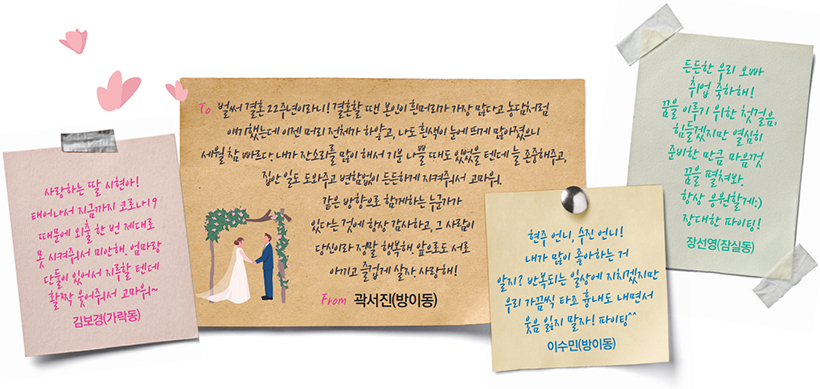 사랑하는 딸 시현아!
태어나서 지금까지 코로나19
때문에 외출 한 번 제대로
못 시켜줘서 미안해. 엄마랑
단둘이 있어서 지루할 텐데
활짝 웃어줘서 고마워~
김보경(가락동)
To. 벌써 결혼 22주년이라니! 결혼할 땐 본인이 흰머리가 가장 많다고 농담처럼
얘기했는데 이젠 머리 전체가 하얗고, 나도 흰색이 눈에 띄게 많아졌으니
세월 참 빠르다. 내가 잔소리를 많이 해서 기분 나쁠 때도 있었을 텐데 늘 존중해주고,
집안 일도 도와주고 변함없이 든든하게 지켜줘서 고마워.
같은 방향으로 함께하는 누군가가
있다는 것에 항상 감사하고, 그 사람이
당신이라 정말 행복해. 앞으로도 서로
아끼고 즐겁게 살자. 사랑해!
From 곽서진(방이동)
현주 언니, 수진 언니!
내가 많이 좋아하는 거
알지? 반복되는 일상에 지치겠지만
우리 가끔씩 타조 흉내도 내면서
웃음 잃지 말자! 파이팅^^
이수민(방이동)
든든한 우리 오빠
취업 축하해!
꿈을 이루기 위한 첫걸음,
힘들겠지만 열심히
준비한 만큼 마음껏
꿈을 펼쳐봐.
항상 응원할게:)
장대한 파이팅!
장선영(잠실동)